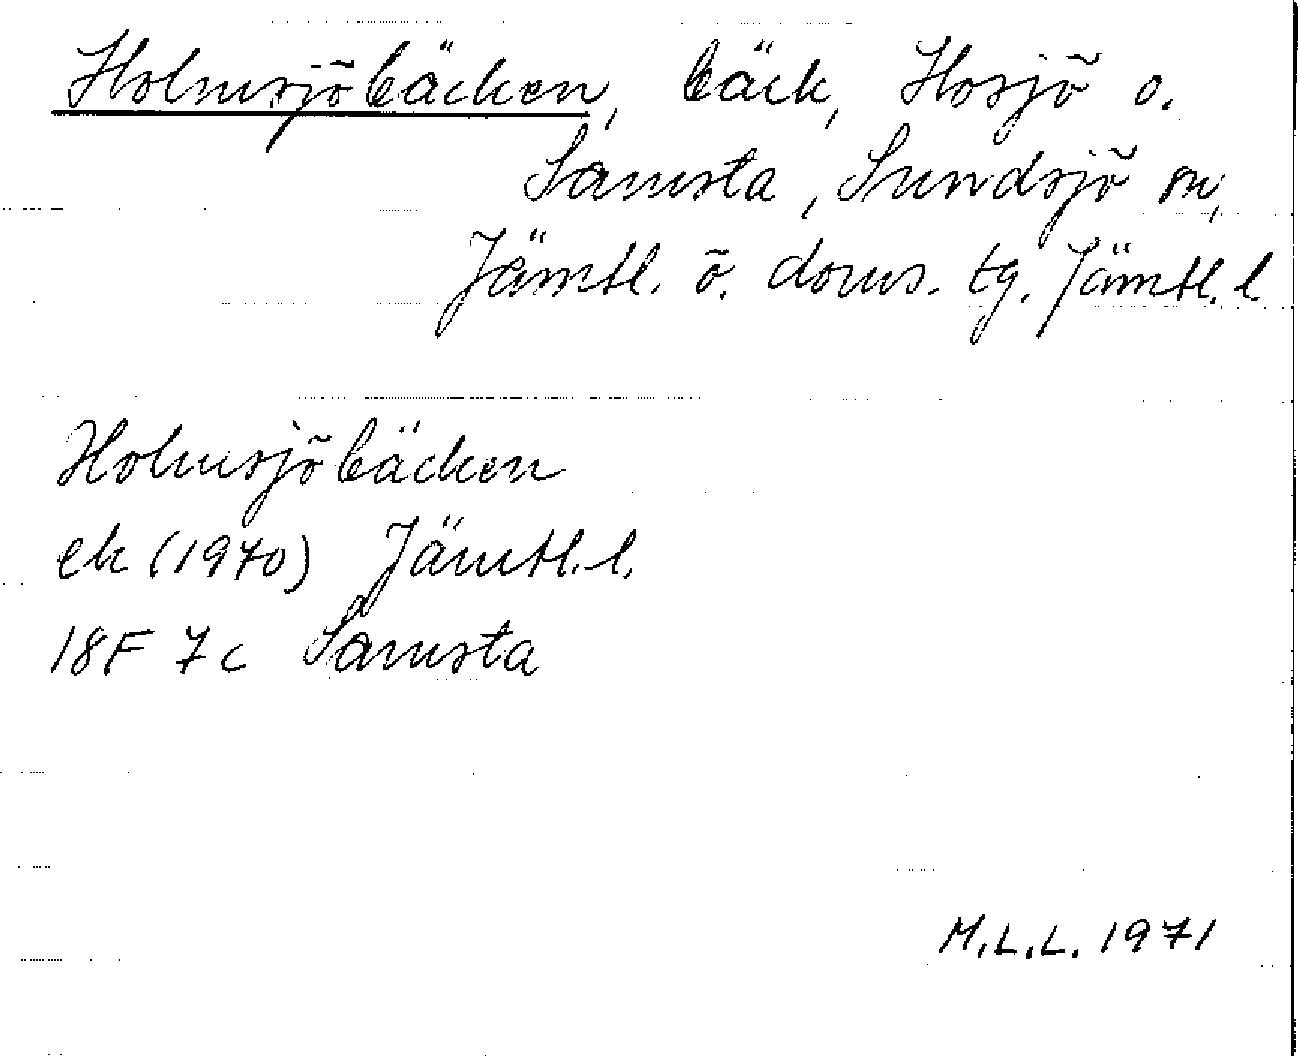 Holmsjöbäcken, bäck, Hosjö o.
Samsta, Sundsjö sn,
Jämtl. ö. doms. tg. Jämtl. l
Holmsjöbäcken
ek (1970) Jämtl. l.
18F 7c Samsta
M.L.L. 1971